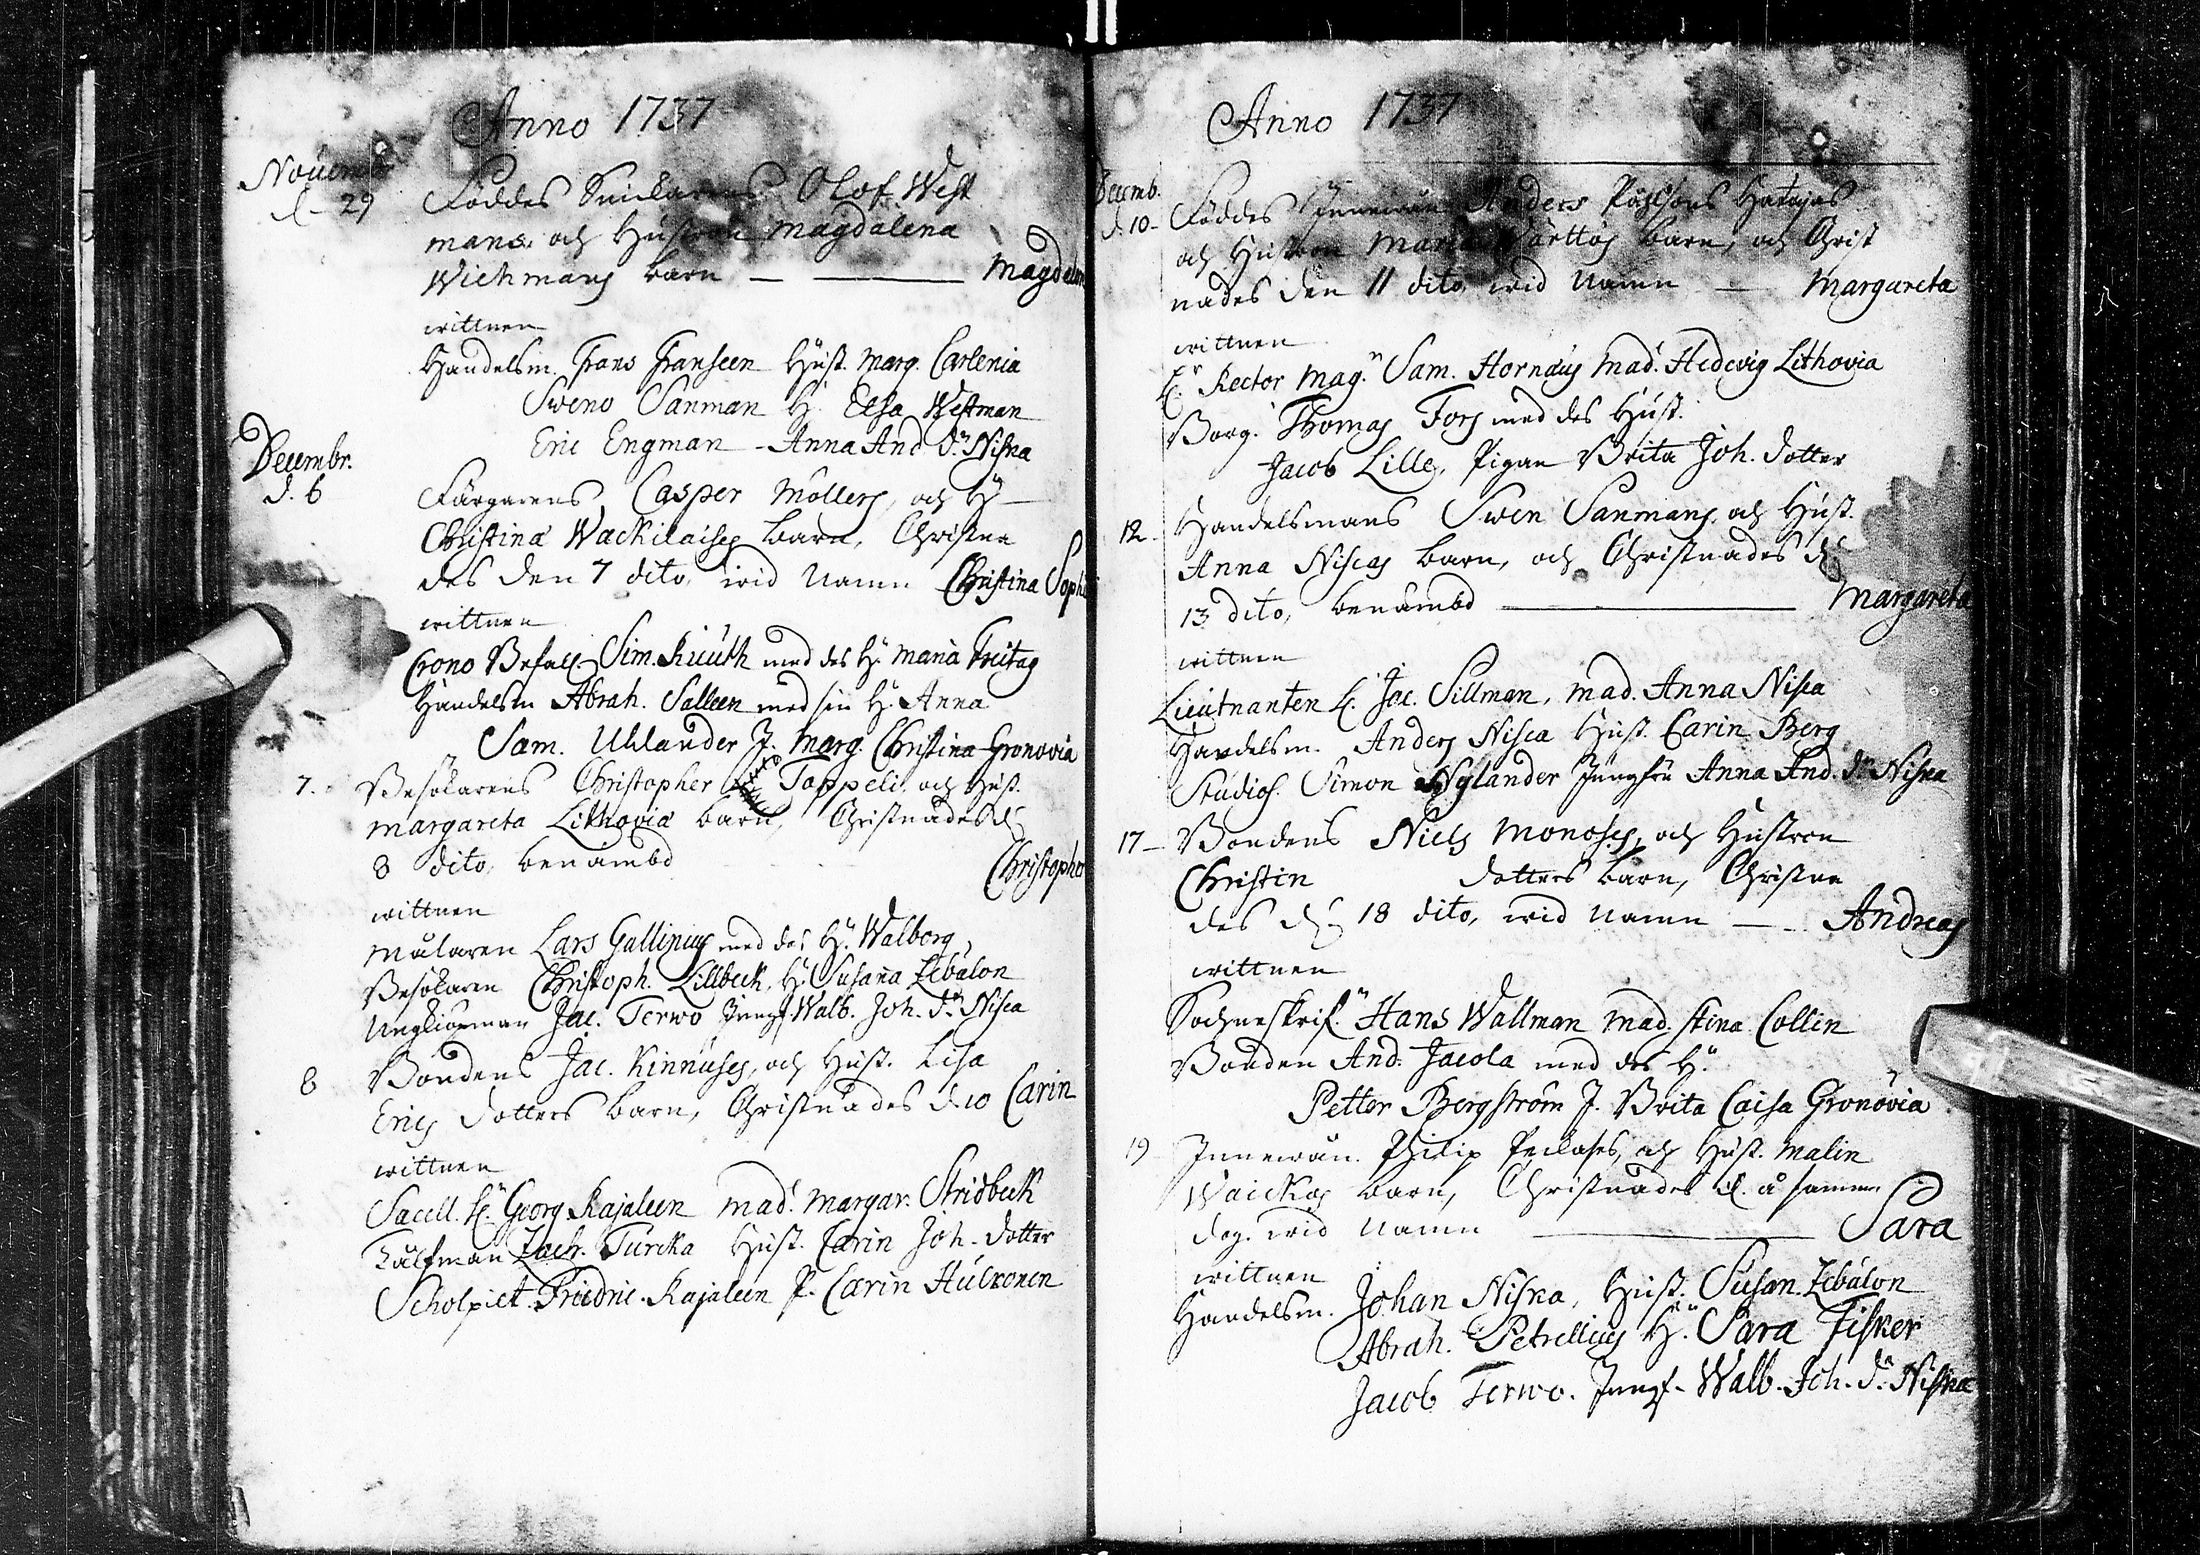 Anno 1737
Novembr
d. 29
Föddes Snickarens Olof West
mans, och Hustrun Magdalena
Wichmans barn — — Magdalen
wittnen
Handelsm. Frans Franseen Hust. Marg. Carlenia
Sweno Sanman H. Elsa Westman
Eric Engman - Anna And. dr. Niska
Decembr.
d. 6
Färgarens Casper Möllers, och H
Christina Wackilaises barn, Christna
des den 7 dito, wid namn Christina Soph
wittnen
Crono Befall. Sim. Kiuth med des H. Maria Freitag
Handelsm Abrah. Salleen med sin H. Anna
Sam. Uhlander J. Marg. Christina Gronovia
7. Besökarens Christopher Toppeli, och Hust.
Margareta Lithovia barn, Christnades d.
8 dito, benämbd Christopher
wittnen
Målaren Lars Gallinius med des H. Walborg
Besökaren Christoph. Lillbeck, H. Susana Zebulon
Ungkarman Jac. Terwo Jungf. Walb. Joh. dr. Nisca
8 Bondens Jac. Kinnuses, och Hust. Lisa
Erics dotters barn, Christnades d. 10 Carin
wittnen
Sacell. H. Georg Kajaleen Mad. Margar. Stridbeck
Zachr. Turcka Hust. Carin Joh. dotter
Scholpiet. Friedric. Kajaleen P. Carin Hulkonen
Anno 1737
Decemb.
d. 10 - Föddes Innewån Anders Påhlsons Hatajas
och Hustrun Maria Warttos barn, och Christ
nades den 11 dito, wid namn — Margareta
wittnen
H. Rector Mag. Sam. Hornæus Mad. Hedevig Lithovia
Borg. Thomas Fors med des Hust.
Jacob Lille, Pigan Brita Joh. dotter
12. Handelsmans Swen Sanmans, och Hust.
Anna Niscas barn, och Christnades d.
13 dito, benämbd — Margareta
wittnen
Lieutnanten H. Jac. Sillman, Mad. Anna Nisca
Handelsm. Anders Nisca Hust. Carin Berg
Studios. Simon Nylander Jungfru Anna And. dr. Niska
17 - Bondens Niels Monoses, och Hustrun
Christin dotters barn, Christna
des d. 18 dito, wid namn — Andreas
wittnen
Sochneskrif. Hans Wallman Mad. Stina Collin
Bonden And. Jacola med des H.
Petter Bergström J. Brita Caisa Gronovia
19 Innewån. Philip och Hust. Malin
Waickos barn, Christnades d. å samma
dag. wid namn — Sara
wittnen
Handelsm. Johan Niska, Hust. Susan. Zebulon
Abrah. Petrellius H. Sara Fisker
Jacob Terwo. Jungf. Walb. Joh. dr. Niska